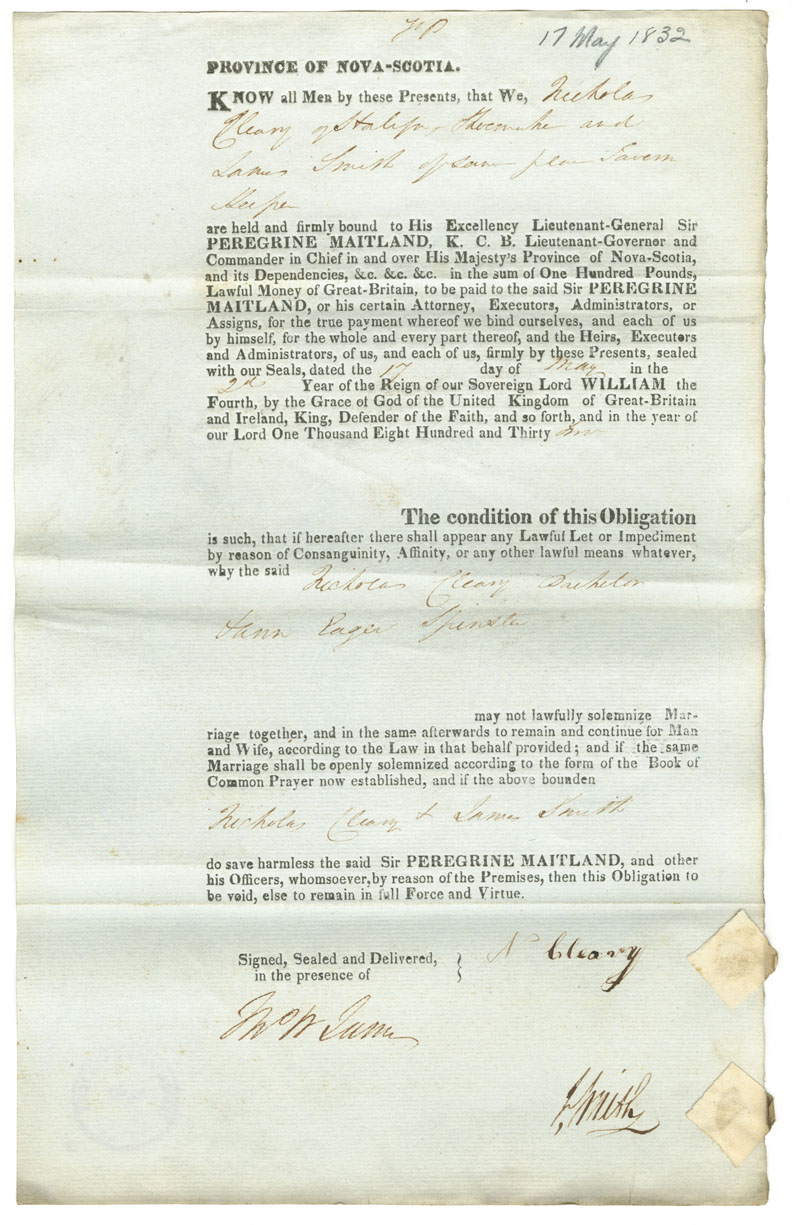 17 May 1832
PROVINCE OF NOVA-SCOTIA.
KNOW all Men by these Presents, that We, Nicholas
Cleary of Halifax Shoemaker and
James Smith of same place Tavern
Keeper
are held and firmly bound to His Excellency Lieutenant-General Sir
PEREGRINE MAITLAND, K. C. B. Lieutenant-Governor and
Commander in Chief in and over His Majesty's Province of Nova-Scotia,
and its Dependencies, &c. &c. &c. in the sum of One Hundred Pounds,
Lawful Money of Great-Britain, to be paid to the said Sir PEREGRINE
MAITLAND, or his certain Attorney, Executors, Administrators, or
Assigns, for the true payment whereof we bind ourselves, and each of us
by himself, for the whole and every part thereof, and the Heirs, Executors
and Administrators, of us, and each of us, firmly by these Presents, sealed
with our Seals, dated the 17 day of May in the
2d Year of the Reign of our Sovereign Lord WILLIAM the
Fourth, by the Grace of God of the United Kingdom of Great-Britain
and Ireland, King, Defender of the Faith, and so forth, and in the year of
our Lord One Thousand Eight Hundred and Thirty two
The condition of this Obligation
is such, that if hereafter there shall appear any Lawful Let or Impediment
by reason of Consanguinity, Affinity, or any other lawful means whatever,
why the said Nicholas Cleary Bachelor
& Ann Eager Spinster
may not lawfully solemnize Mar-
riage together, and in the same afterwards to remain and continue for Man
and Wife, according to the Law in that behalf provided; and if the same
Marriage shall be openly solemnized according to the form of the Book of
Common Prayer now established, and if the above bounden
Nicholas Cleary & James Smith
do save harmless the said Sir PEREGRINE MAITLAND, and other
his Officers, whomsoever, by reason of the Premises, then this Obligation to
be void, else to remain in full Force and Virtue.
Signed, Sealed and Delivered,
in the presence of
N Cleary
Thos W James
J Smith